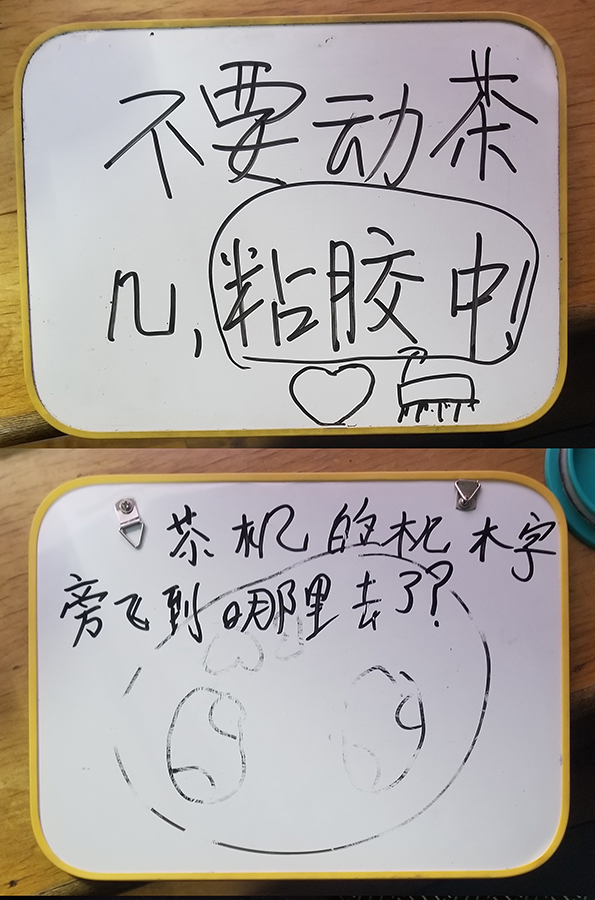 不要动茶
几，粘胶中！
茶机的机木字
旁飞到哪里去了？